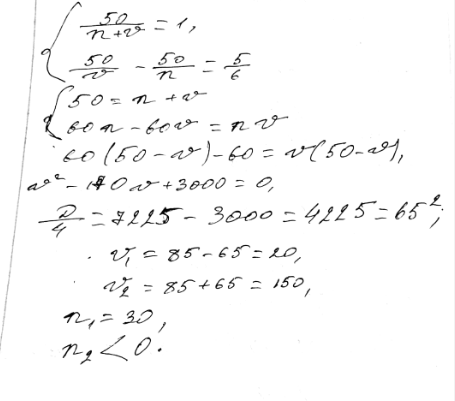 { 50/(n+v) = 1,
50/v - 50/n = 5/6
{ 50 = n + v
60n - 60v = nv
60(50 - v) - 60 = v(50 - v),
v² - 170v + 3000 = 0,
D/4 = 7225 - 3000 = 4225 = 65²;
v₁ = 85 - 65 = 20,
v₂ = 85 + 65 = 150,
n₁ = 30,
n₂ < 0.